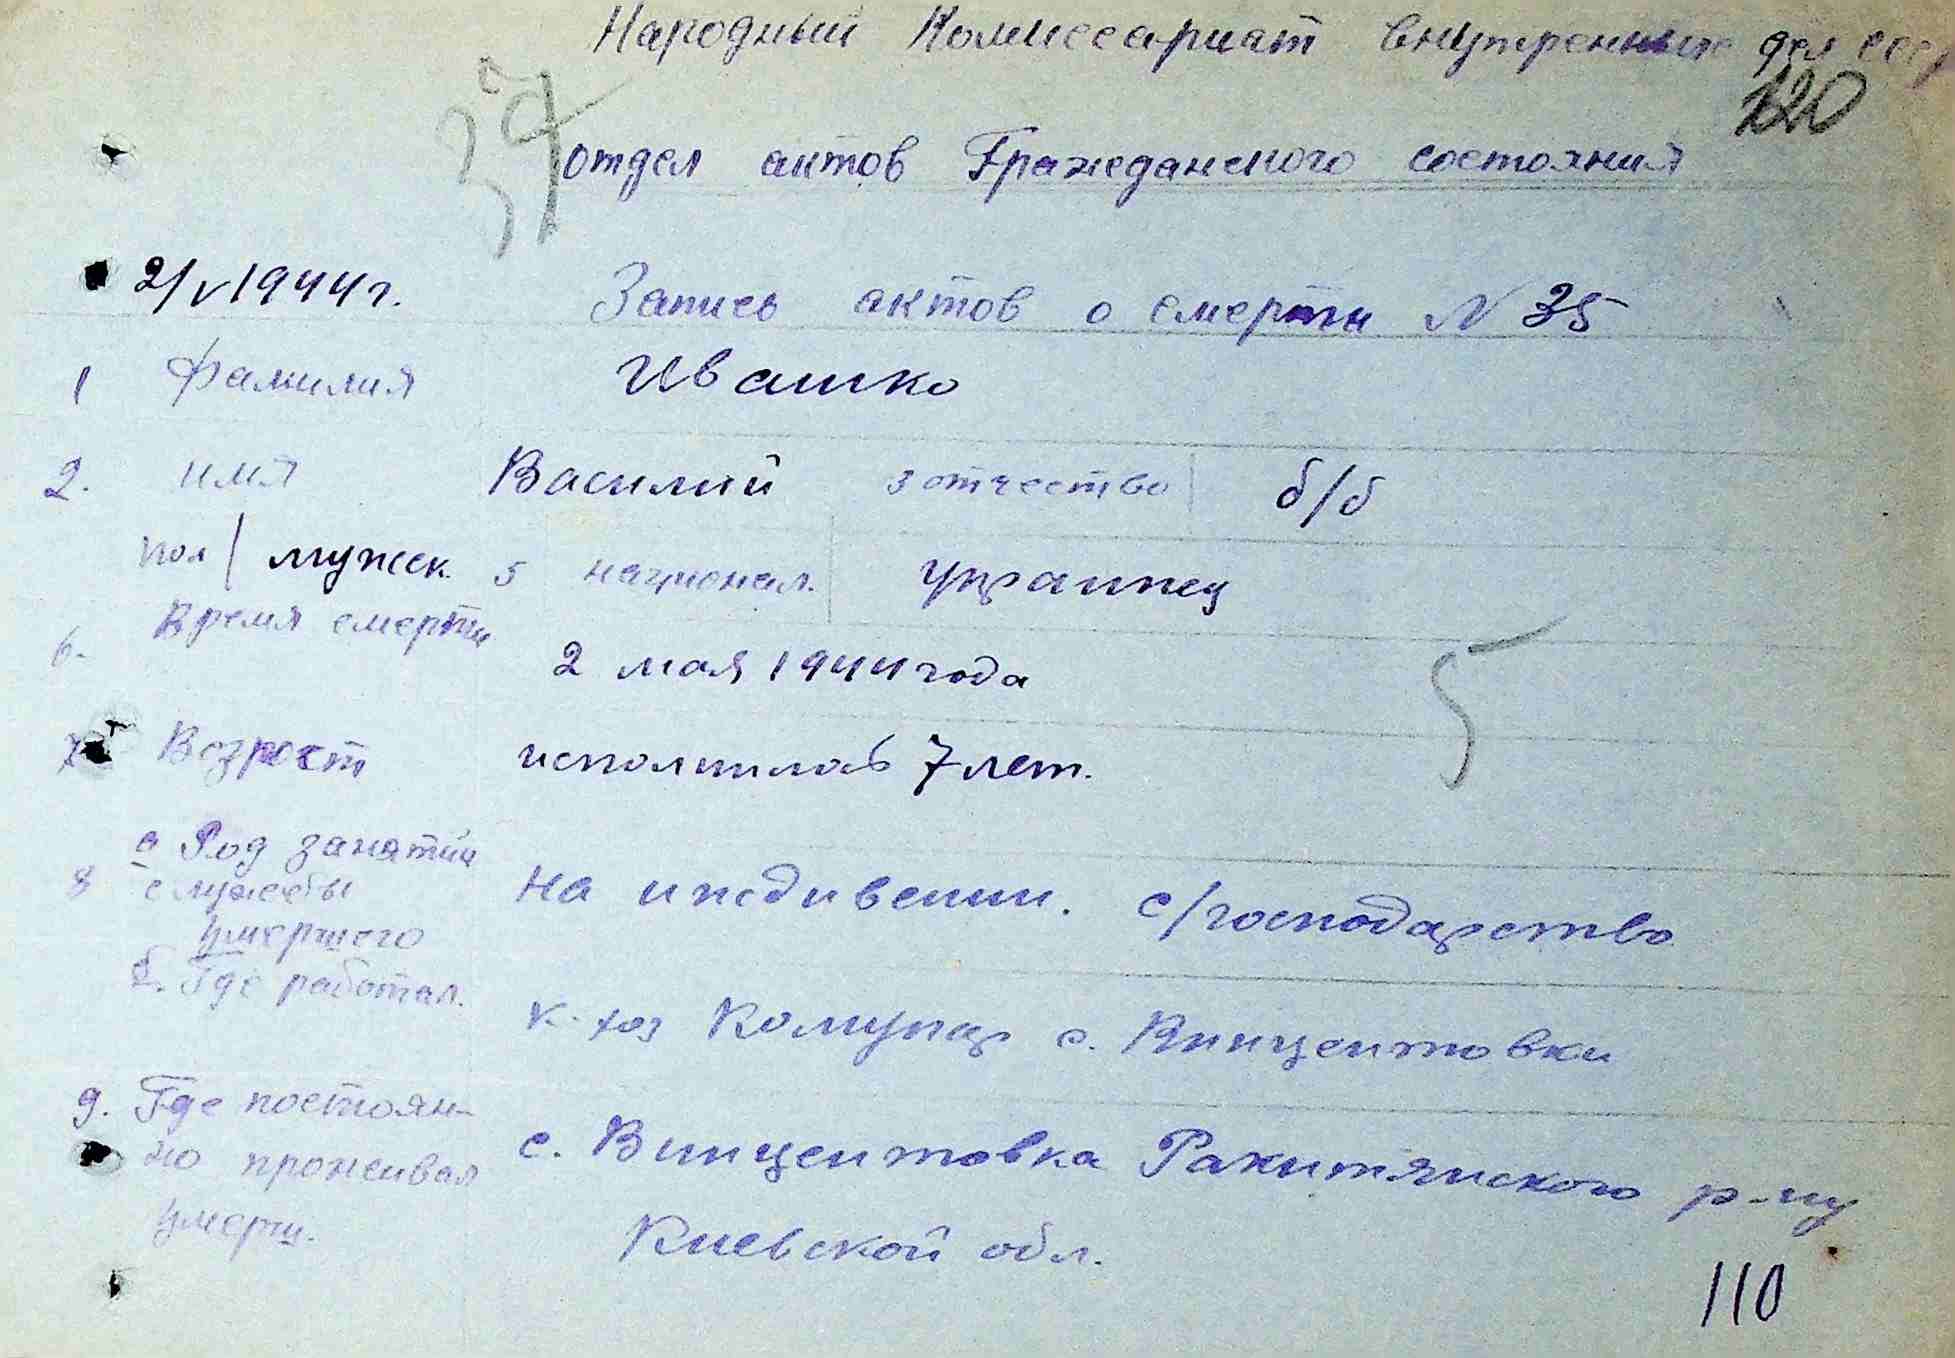 Народный Комиссариат внутренных дел СССР
120
37
отдел актов Гражеданского состояния
2/V 1944 г.
Запись актов о смерти N 35
1 Фамилия Ивашко
2. имя Василий 3 отчество б/б
пол / мужск. 5 национал. украинец
6. Время смерти 2 мая 1944 года
5
7 Возрост исполнилось 7 лет.
8 а Род занятий
службы
умершего
на иждивении. с/господарство
б. Где работал. к-хоз Комунар с. Винцентовки
9. Где постоян-
но проживал
умерш.
с. Винцентовка Ракитянского р-ну
Киевской обл.
110